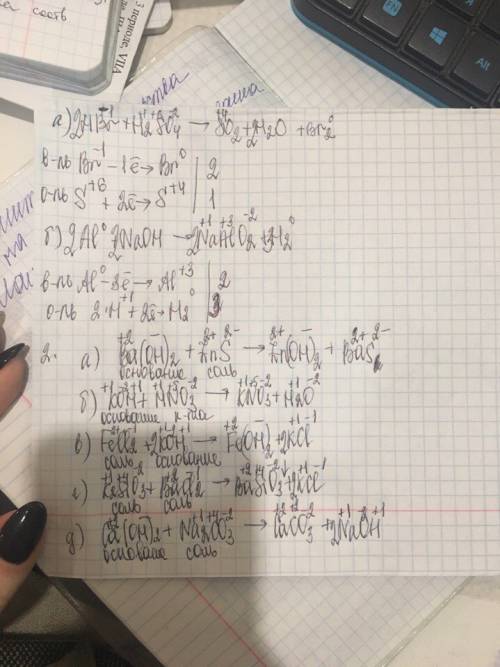 3 периоде, VIIA
а) 2HBr⁻¹ + H₂⁺¹S⁺⁶O₄⁻² → S⁺⁴O₂ + 2H₂O + Br₂⁰
в-ль Br⁻¹ - 1ē → Br⁰ | 2
о-ль S⁺⁶ + 2ē → S⁺⁴ | 1
б) 2Al⁰ 2NaOH → 2Na⁺¹Al⁺³O₂⁻² + 3H₂⁰
в-ль Al⁰ - 3ē → Al⁺³ | 2
о-ль 2H⁺¹ + 2ē → H₂⁰ | 3
2. а) Ba⁺²(OH)⁻₂ + Zn²⁺S²⁻ → Zn²⁺(OH)⁻₂ + Ba²⁺S²⁻
основание соль
б) K⁺¹O⁻²H⁺¹ + H⁺¹N⁺⁵O₃⁻² → K⁺¹N⁺⁵O₃⁻² + H₂⁺¹O⁻²
основание к-та
в) FeCl₂ + 2KOH → Fe⁺²(OH)⁻₂ + 2K⁺¹Cl⁻¹
соль основание
г) K₂SiO₃ + BaCl₂ → BaSiO₃↓ + 2KCl⁻¹
соль соль
д) Ca⁺²(OH)⁻₂ + Na₂⁺¹C⁺⁴O₃⁻² → CaCO₃⁻² + 2Na⁺¹O⁻²H⁺¹
основание соль